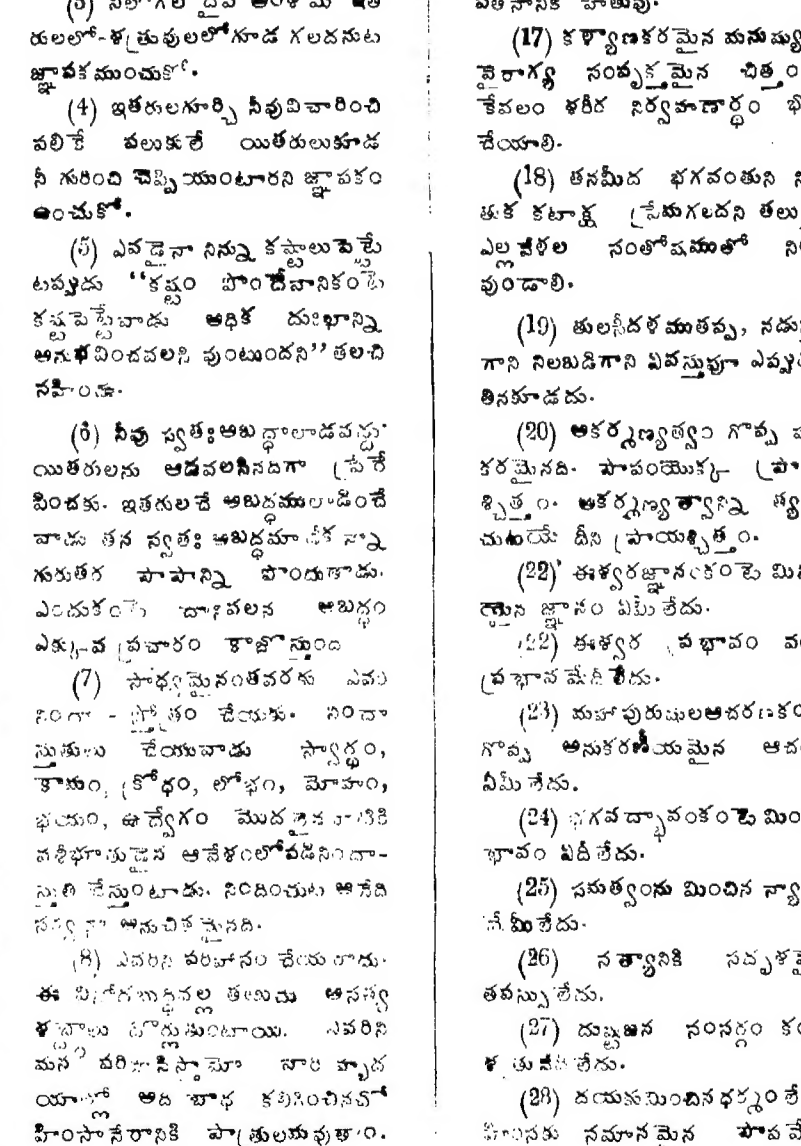 (3) నీలో గల దైవ అంశము ఇత
రులలో-శత్రువులలోగూడ గలదనుట
జ్ఞాపకముంచుకో.
(4) ఇతరులగూర్చి నీవువిచారించి
పలికే పలుకులే యితరులుకూడ
నీ గురించి చెప్పియుంటారని జ్ఞాపకం
ఉంచుకో.
(5) ఎవడైనా నిన్ను కష్టాలు పెట్టే
టప్పుడు “కష్టం పొందేవానికంటె
కష్టపెట్టేవాడు అధిక దుఃఖాన్ని
అనుభవించవలసి వుంటుందని” తలచి
సహించు.
(6) నీవు స్వతఃఅబద్ధాలాడవద్దు
యితరులను ఆడవలసినదిగా ప్రేరే
పించకు. ఇతరులచే అబద్ధములాడించే
వాడు తన స్వతః అబద్ధమాడేకన్నా
గురుతర పాపాన్ని పొందుతాడు.
ఎందుకంటె దానివలన అబద్ధం
ఎక్కువ ప్రచారం కాజొస్తుంది
(7) సాధ్యమైనంతవరకు ఎవరి
నిందా - స్తోత్రం చేయకు. నిందా
స్తుతులు చేయువాడు స్వార్థం,
కామం, క్రోధం, లోభం, మోహం,
భయం, ఉద్వేగం మొదలైన వాటికి
వశీభూతుడైన ఆవేశంలోపడి నిందా-
స్తుతి చేస్తుంటాడు. నిందించుట అనేది
సర్వథా అనుచితమైనది.
(8) ఎవరిని పరిహాసం చేయరాదు.
ఈ వినోదబుద్ధివల్ల తలచు అసభ్య
శబ్దాలు దొర్లుకుంటాయి. ఎవరిని
మనం పరిహసిస్తామో వారి హృద
యాల్లో అది బాధ కలిగించినచో
హింసానేరానికి పాత్రులమవుతాం.
పతనానికి హేతువు.
(17) కళ్యాణకరమైన మనుష్యు
వైరాగ్య సంపృక్తమైన చిత్తం
కేవలం శరీర నిర్వహణార్థం భ
చేయాలి.
(18) తనమీద భగవంతుని ని
తుక కటాక్ష ప్రేమగలదని తలు
ఎల్లవేళల సంతోషముతో ని
వుండాలి.
(19) తులసీదళముతప్ప, నడు
గాని నిలబడిగాని ఏవస్తువూ ఎప్పు
తినకూడదు.
(20) అకర్మణ్యత్వం గొప్ప ప
కరమైనది. పాపంయొక్క ప్రా
శ్చిత్తం. అకర్మణ్యత్వాన్ని త్య
చుటయే దీని ప్రాయశ్చిత్తం.
(22) ఈశ్వరజ్ఞానంకంటె మి
నైన జ్ఞానం ఏమీ లేదు.
(22) ఈశ్వర ప్రభావం వ
ప్రభావమేదీ లేదు.
(23) మహాపురుషులఆచరణకం
గొప్ప అనుకరణీయమైన ఆచ
నేమీ లేదు.
(24) భగవద్భావంకంటె మిం
భావం ఏదీ లేదు.
(25) సమత్వంను మించిన న్యా
నేమీ లేదు.
(26) సత్యానికి సదృశమై
తపస్సు లేదు.
(27) దుష్టజన సంసర్గం కం
శత్రువేదీ లేదు.
(28) దయకుమించిన ధర్మం లే
హింసకు సమానమైన పాపమే